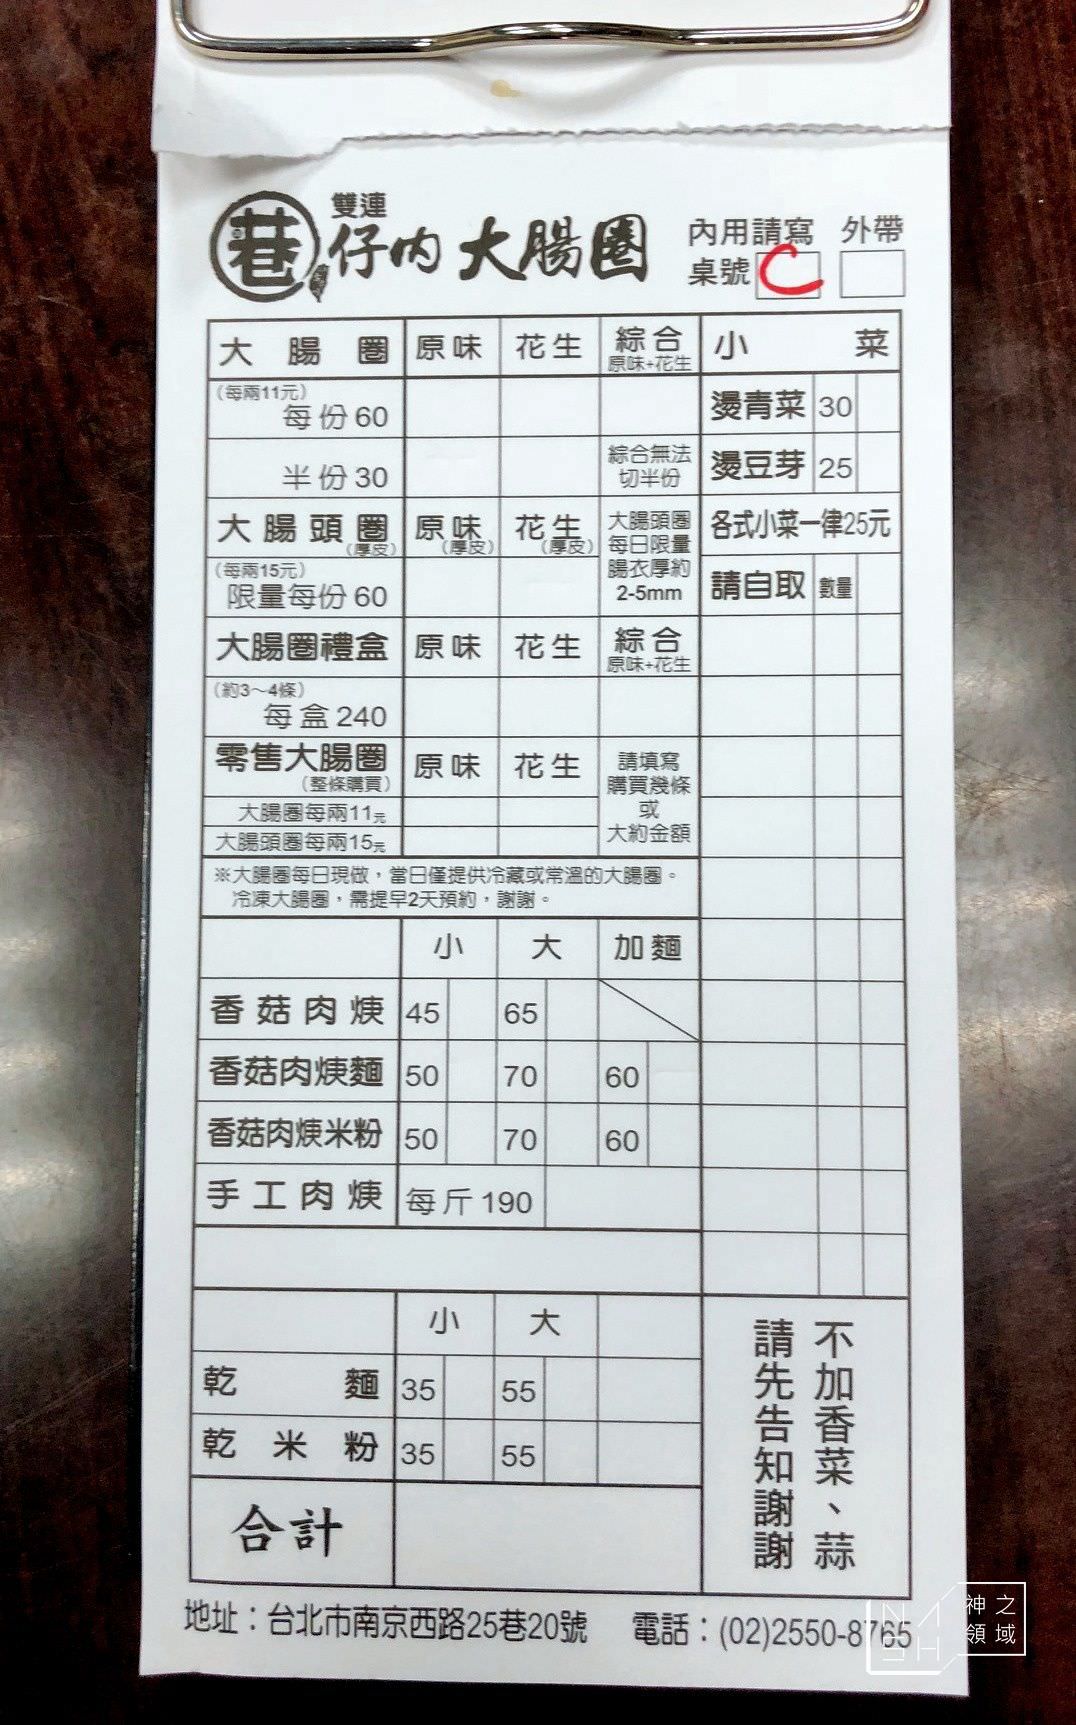 巷
雙連
仔內 大腸圈
內用請寫 外帶
桌號 C
大腸圈 原味 花生 綜合 原味+花生
(每兩11元)
每份60
半份30 綜合無法切半份
大腸頭圈(厚皮) 原味(厚皮) 花生(厚皮) 大腸頭圈每日限量腸衣厚約2-5mm
(每兩15元)
限量每份60
大腸圈禮盒 原味 花生 綜合 原味+花生
(約3～4條)
每盒240
零售大腸圈 原味 花生 請填寫購買幾條或大約金額
(整條購買)
大腸圈每兩11元
大腸頭圈每兩15元
※大腸圈每日現做，當日僅提供冷藏或常溫的大腸圈。
冷凍大腸圈，需提早2天預約，謝謝。
小 大 加麵
香菇肉焿 45 65
香菇肉焿麵 50 70 60
香菇肉焿米粉 50 70 60
手工肉焿 每斤190
小 大
乾麵 35 55
乾米粉 35 55
合計
小菜
燙青菜 30
燙豆芽 25
各式小菜一律25元
請自取 數量
不加香菜、蒜
請先告知謝謝
地址：台北市南京西路25巷20號 電話：(02)2550-8765
神之
領域